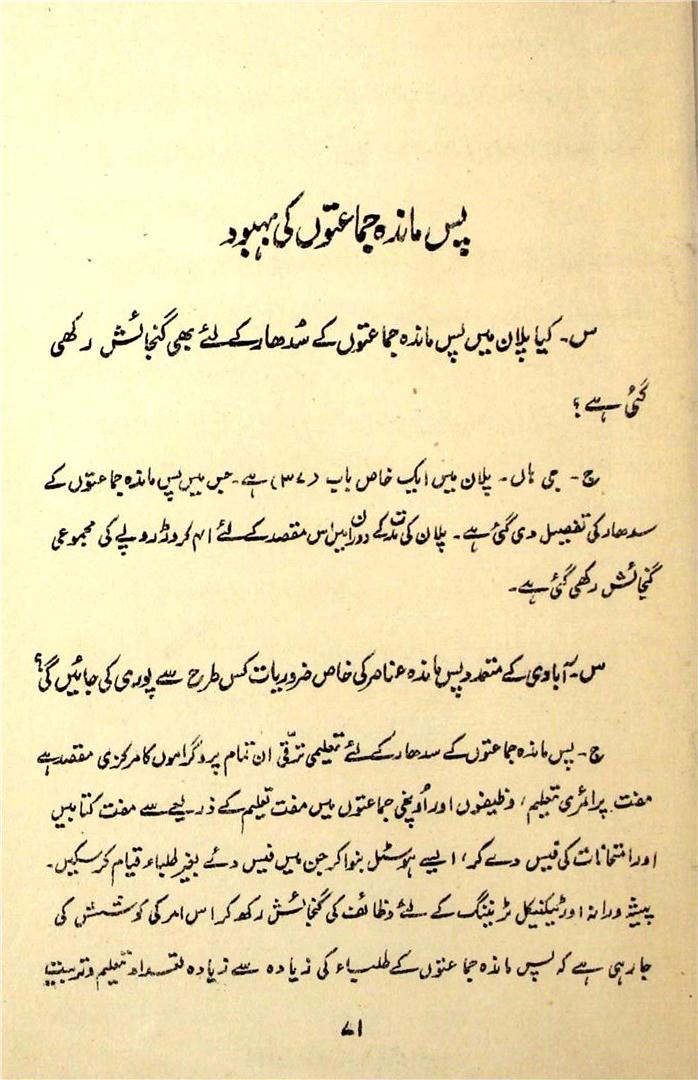 پس ماندہ جماعتوں کی بہبود
س۔ کیا پلان میں پس ماندہ جماعتوں کے سُدھار کے لئے بھی گنجائش رکھی
گئی ہے؟
ج۔ جی ہاں۔ پلان میں ایک خاص باب (۳۷) ہے۔ جس میں پس ماندہ جماعتوں کے
سدھار کی تفصیل دی گئی ہے۔ پلان کی مدت کے دوران میں اس مقصد کے لئے ۴۱ کروڑ روپے کی مجموعی
گنجائش رکھی گئی ہے۔
س۔ آبادی کے متعدد پس ماندہ عناصر کی خاص ضروریات کس طرح سے پوری کی جائیں گی؟
ج۔ پس ماندہ جماعتوں کے سدھار کے لئے تعلیمی ترقی ان تمام پروگراموں کا مرکزی مقصد ہے
مفت پرائمری تعلیم، وظیفوں اور اُونچی جماعتوں میں مفت تعلیم کے ذریعے سے مفت کتابیں
اور امتحانات کی فیس دے کر، ایسے ہوسٹل بنوا کر جن میں فیس دئے بغیر طلباء قیام کر سکیں۔
پیشہ ورانہ اور ٹیکنیکل ٹریننگ کے لئے وظائف کی گنجائش رکھ کر اس امر کی کوشش کی
جا رہی ہے کہ پس ماندہ جماعتوں کے طلباء کی زیادہ سے زیادہ تعداد تعلیم و تربیت
۷۱